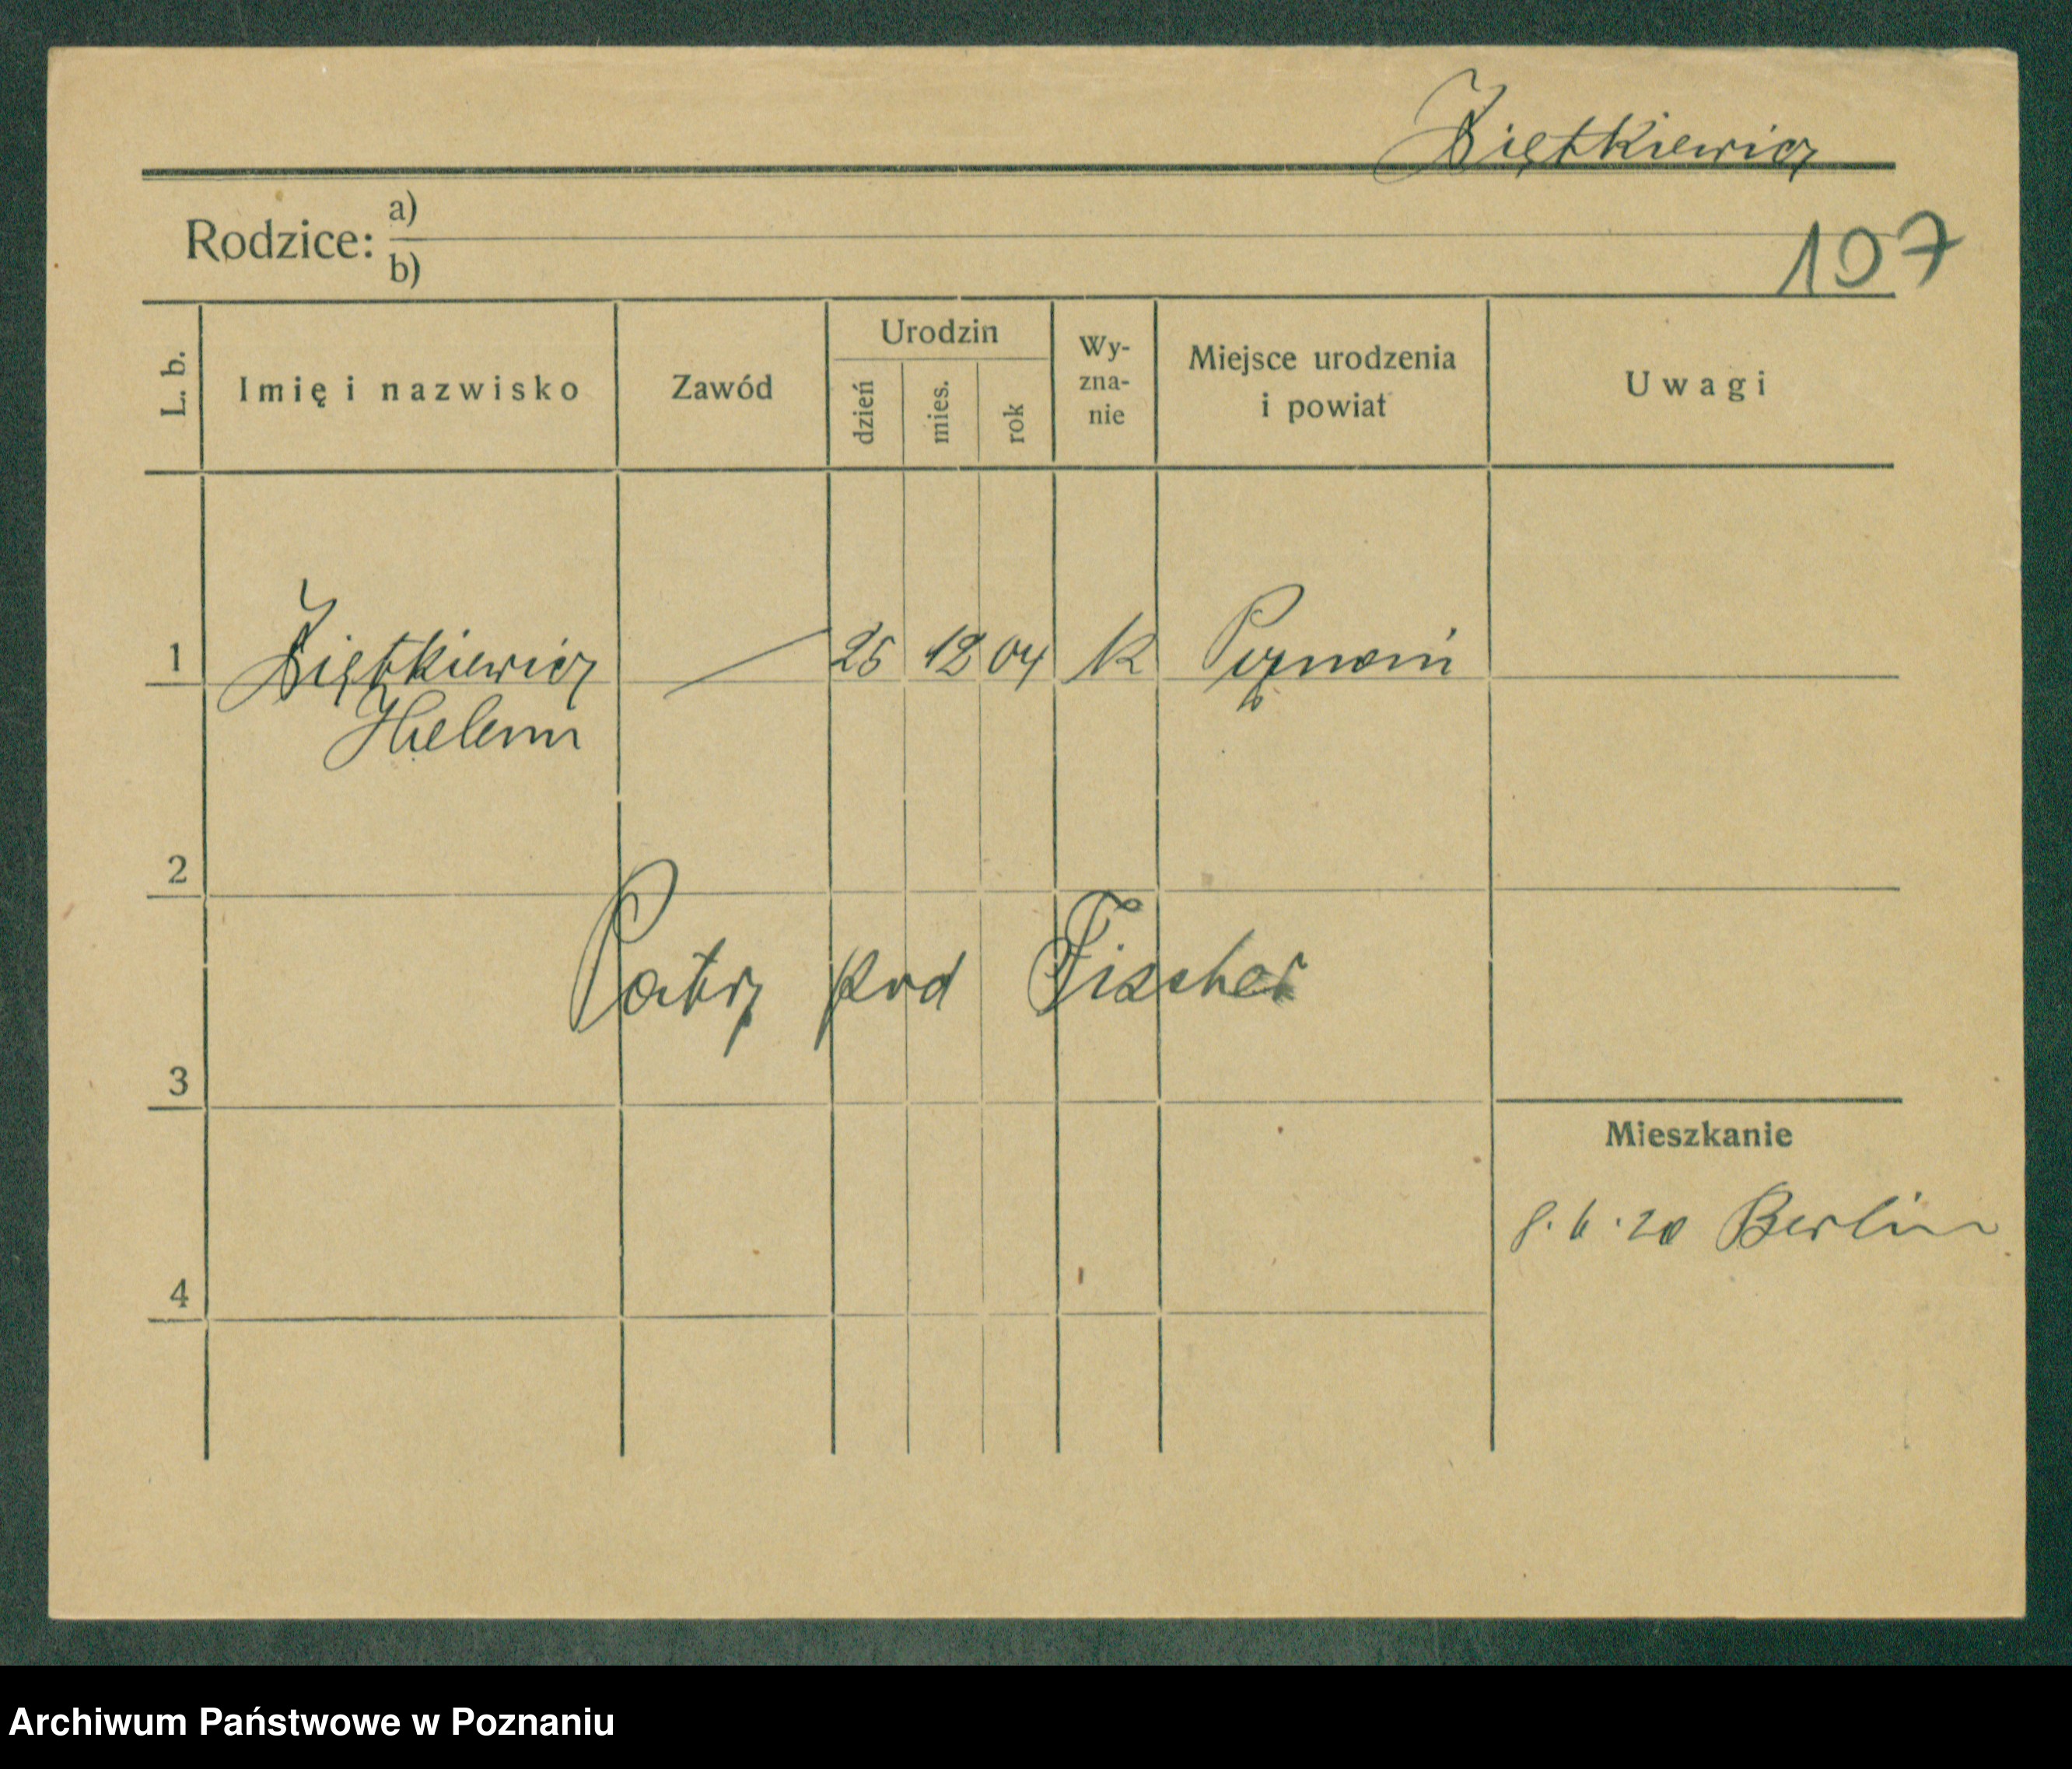 Ziętkiewicz
Rodzice: a)
b)
107
L. b. Imię i nazwisko Zawód Urodzin dzień mies. rok Wy-zna-nie Miejsce urodzenia i powiat Uwagi
1 Ziętkiewicz 25 12 04 K Poznań
Helena
2
Patrz pod Fischer
3
Mieszkanie
8. 6. 20 Berlin
4
Archiwum Państwowe w Poznaniu